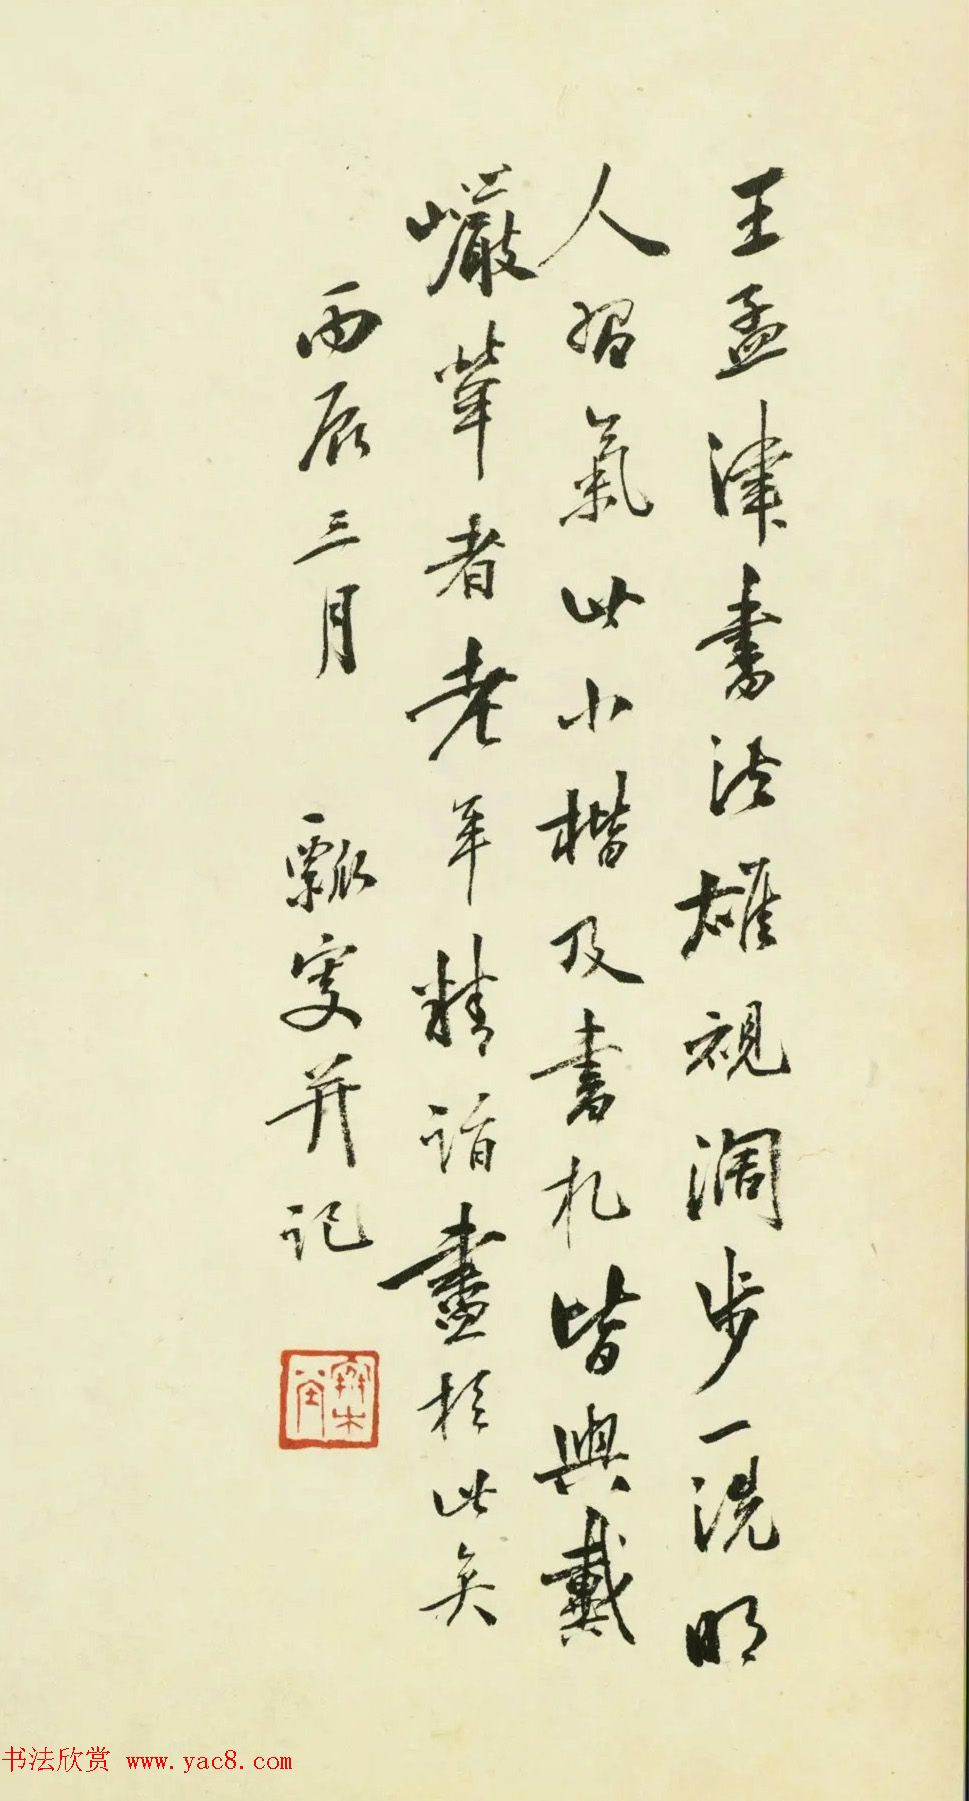 王孟津書法雄視濶步一洗明
人習氣此小楷及書札皆與戴
巖犖者老年精詣盡於此矣
丙辰三月 瓢叟并記
书法欣赏 www.yac8.com